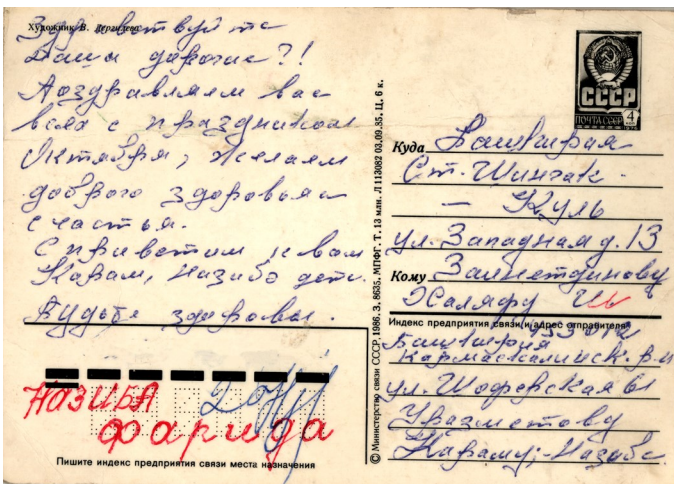 Художник В. Дергилева
Здравствуйте
Наши дорогие?!
Поздравляем вас
всех с праздником
Октября, желаем
доброго здоровья
счастья.
С приветом к вам
Карам, Назиба дети.
Будьте здоровы.
НАЗИБА
Фарида
Пишите индекс предприятия связи места назначения
© Министерство связи СССР, 1986. З. 8635. МПФГ. Т. 13 млн. Л 113082 03.09.85. Ц. 6 к.
СССР
ПОЧТА СССР 4
Куда Башкирия
Ст. Шингак-
– Куль
ул. Западная д. 13
Кому Зайнетдинову
Халяфу
Индекс предприятия связи и адрес отправителя
Башкирия
Кармаскалинск. р-н
ул. Шоферская 61
Уразметову
Караму, Назибе